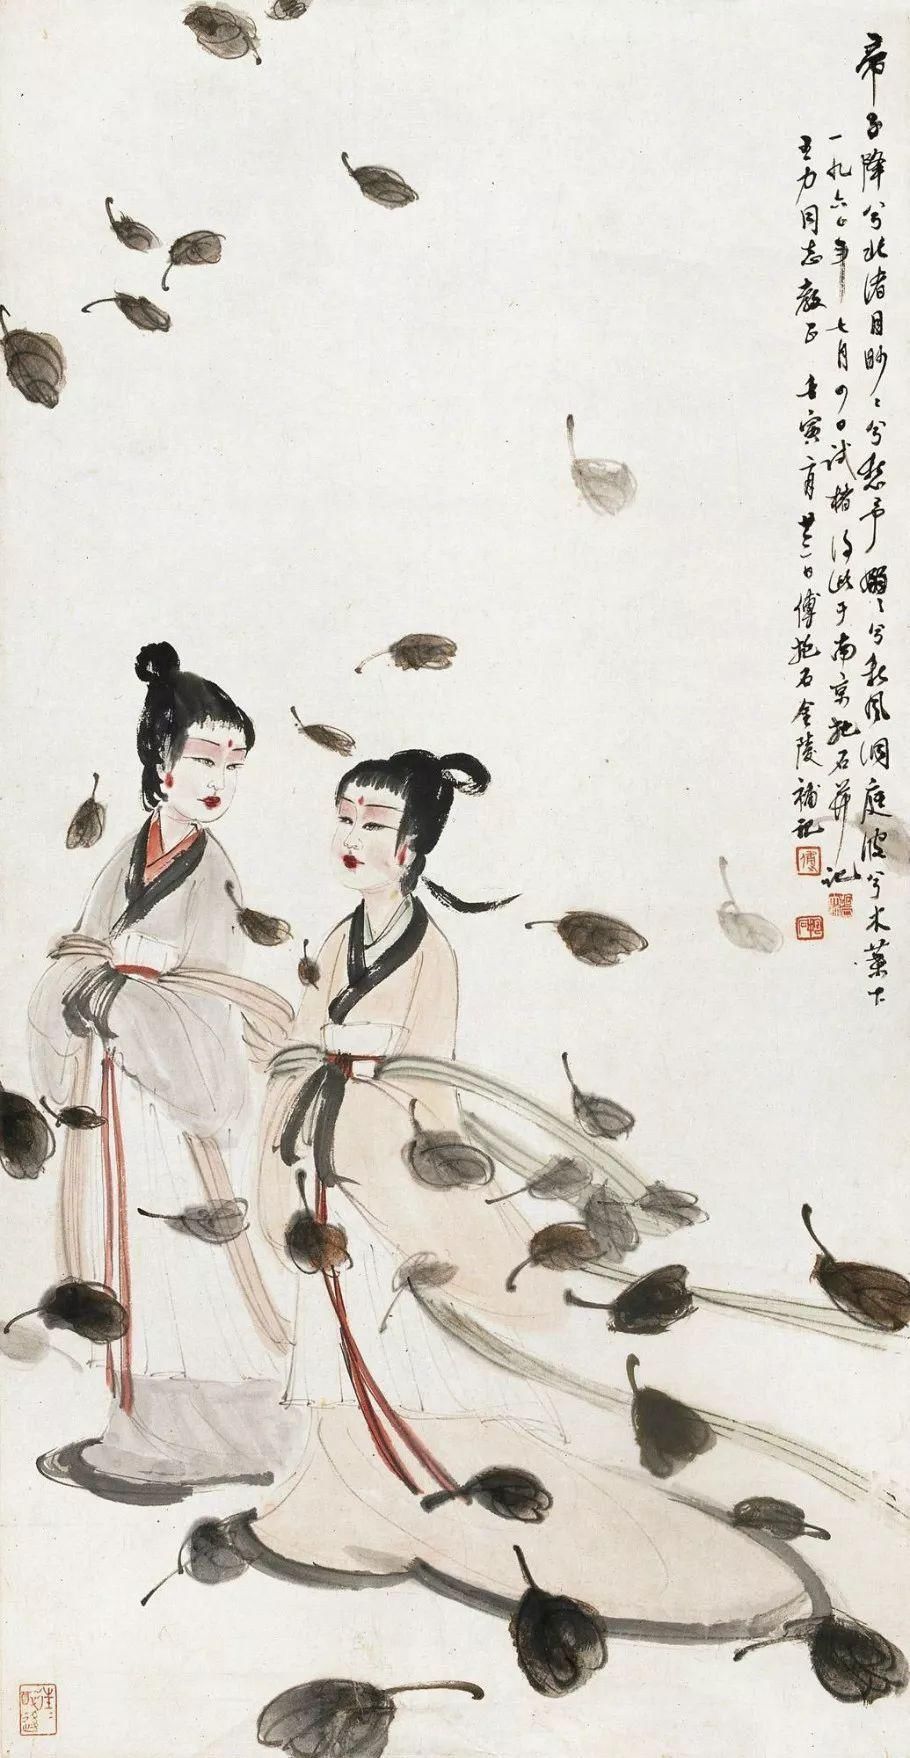 帝子降兮北渚目眇〻兮愁予嫋〻兮秋風洞庭波兮木葉下
一九六年七月四日試楮得此于南京抱石并記
王力同志教正 壬寅二月廿三日傅抱石金陵補記
傅
往〻醉後